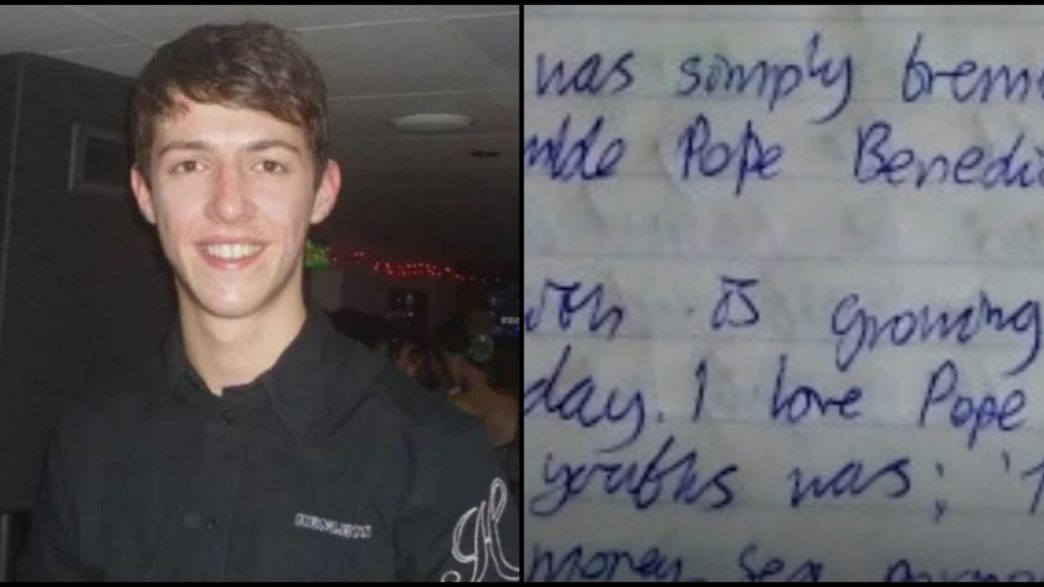 HENLEYS
was simply treme
mble Pope Benedic
is growing
day. I love Pope
youths was; '
money, sex,